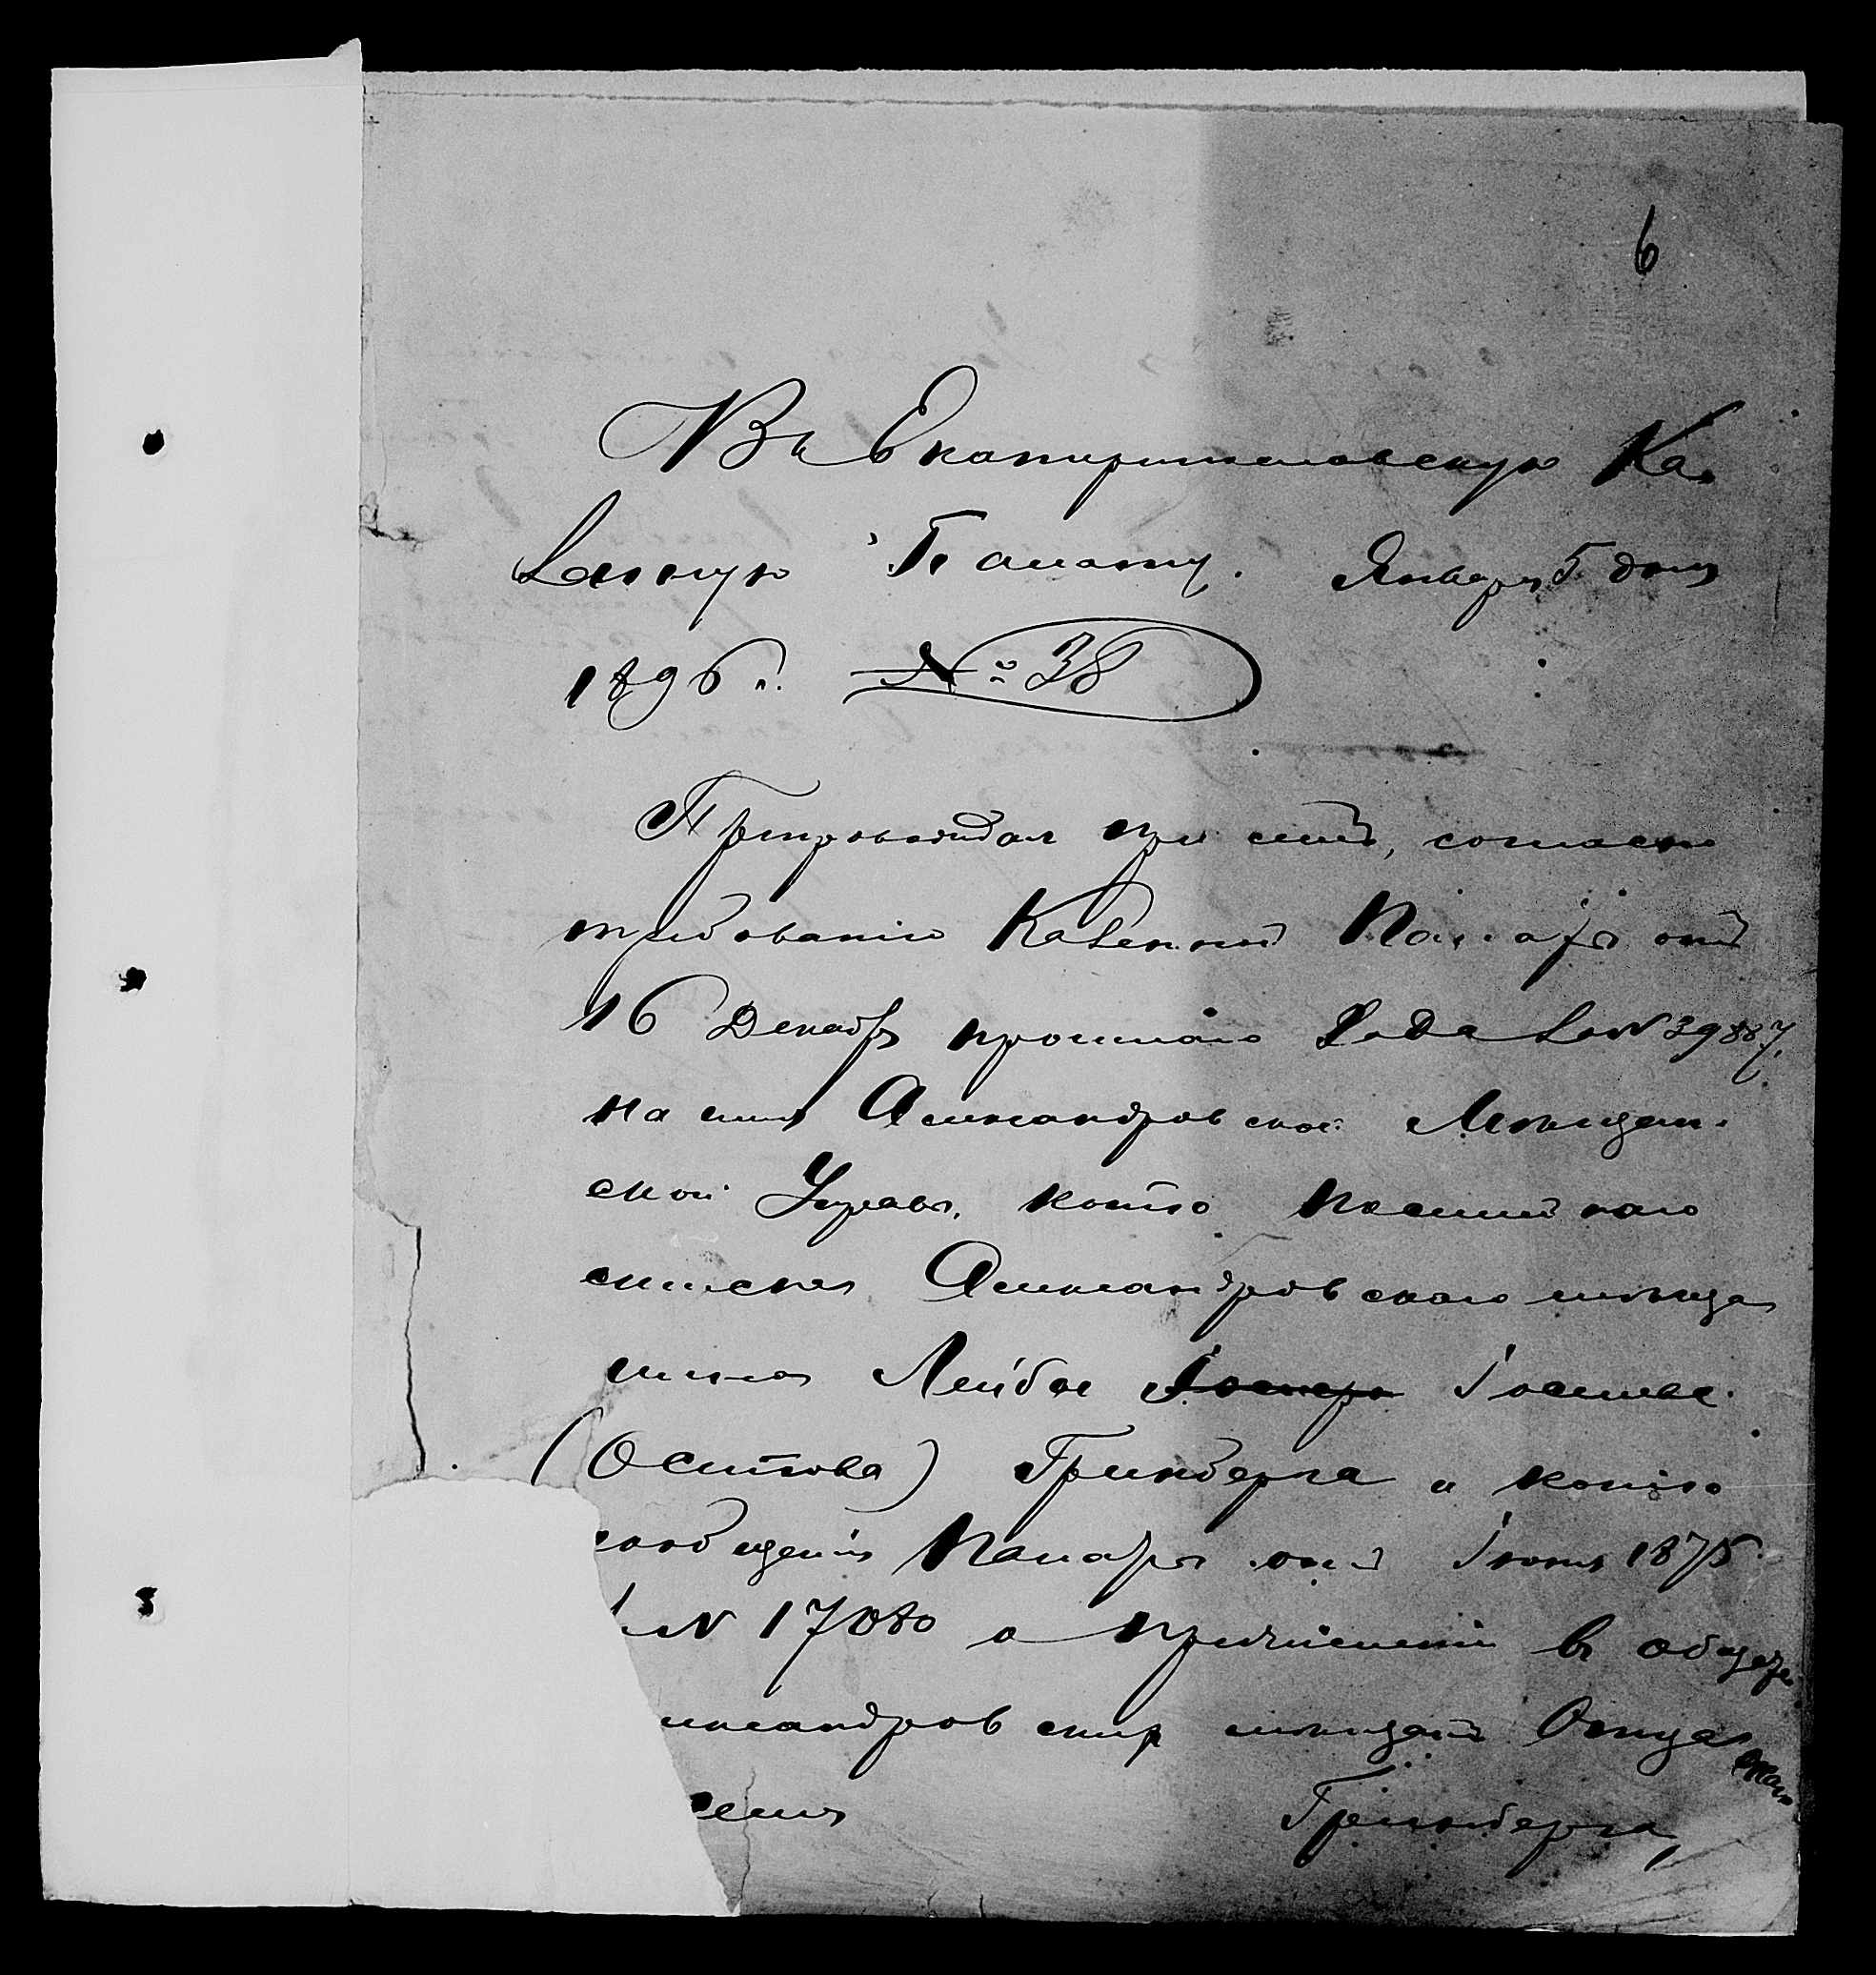 6
Въ Екатеринославскую Ка-
зенную Палату. Января 5 дня
1896 г. № 38
Препровождая при семъ, согласно
требованію Казенной Палаты отъ
16 Декабр прошлаго года за № 39887,
на имя Александровской Мѣщан-
ской Управы, копію посемейнаго
списка Александровскаго мѣща
нина Лейбы Іосиева
(Осипова) Гринберга и копію
сообщенія Палаты отъ Іюня 1875
за № 17080 о причисленіи въ общес
лександровскихъ мѣщанъ
Гринберга,